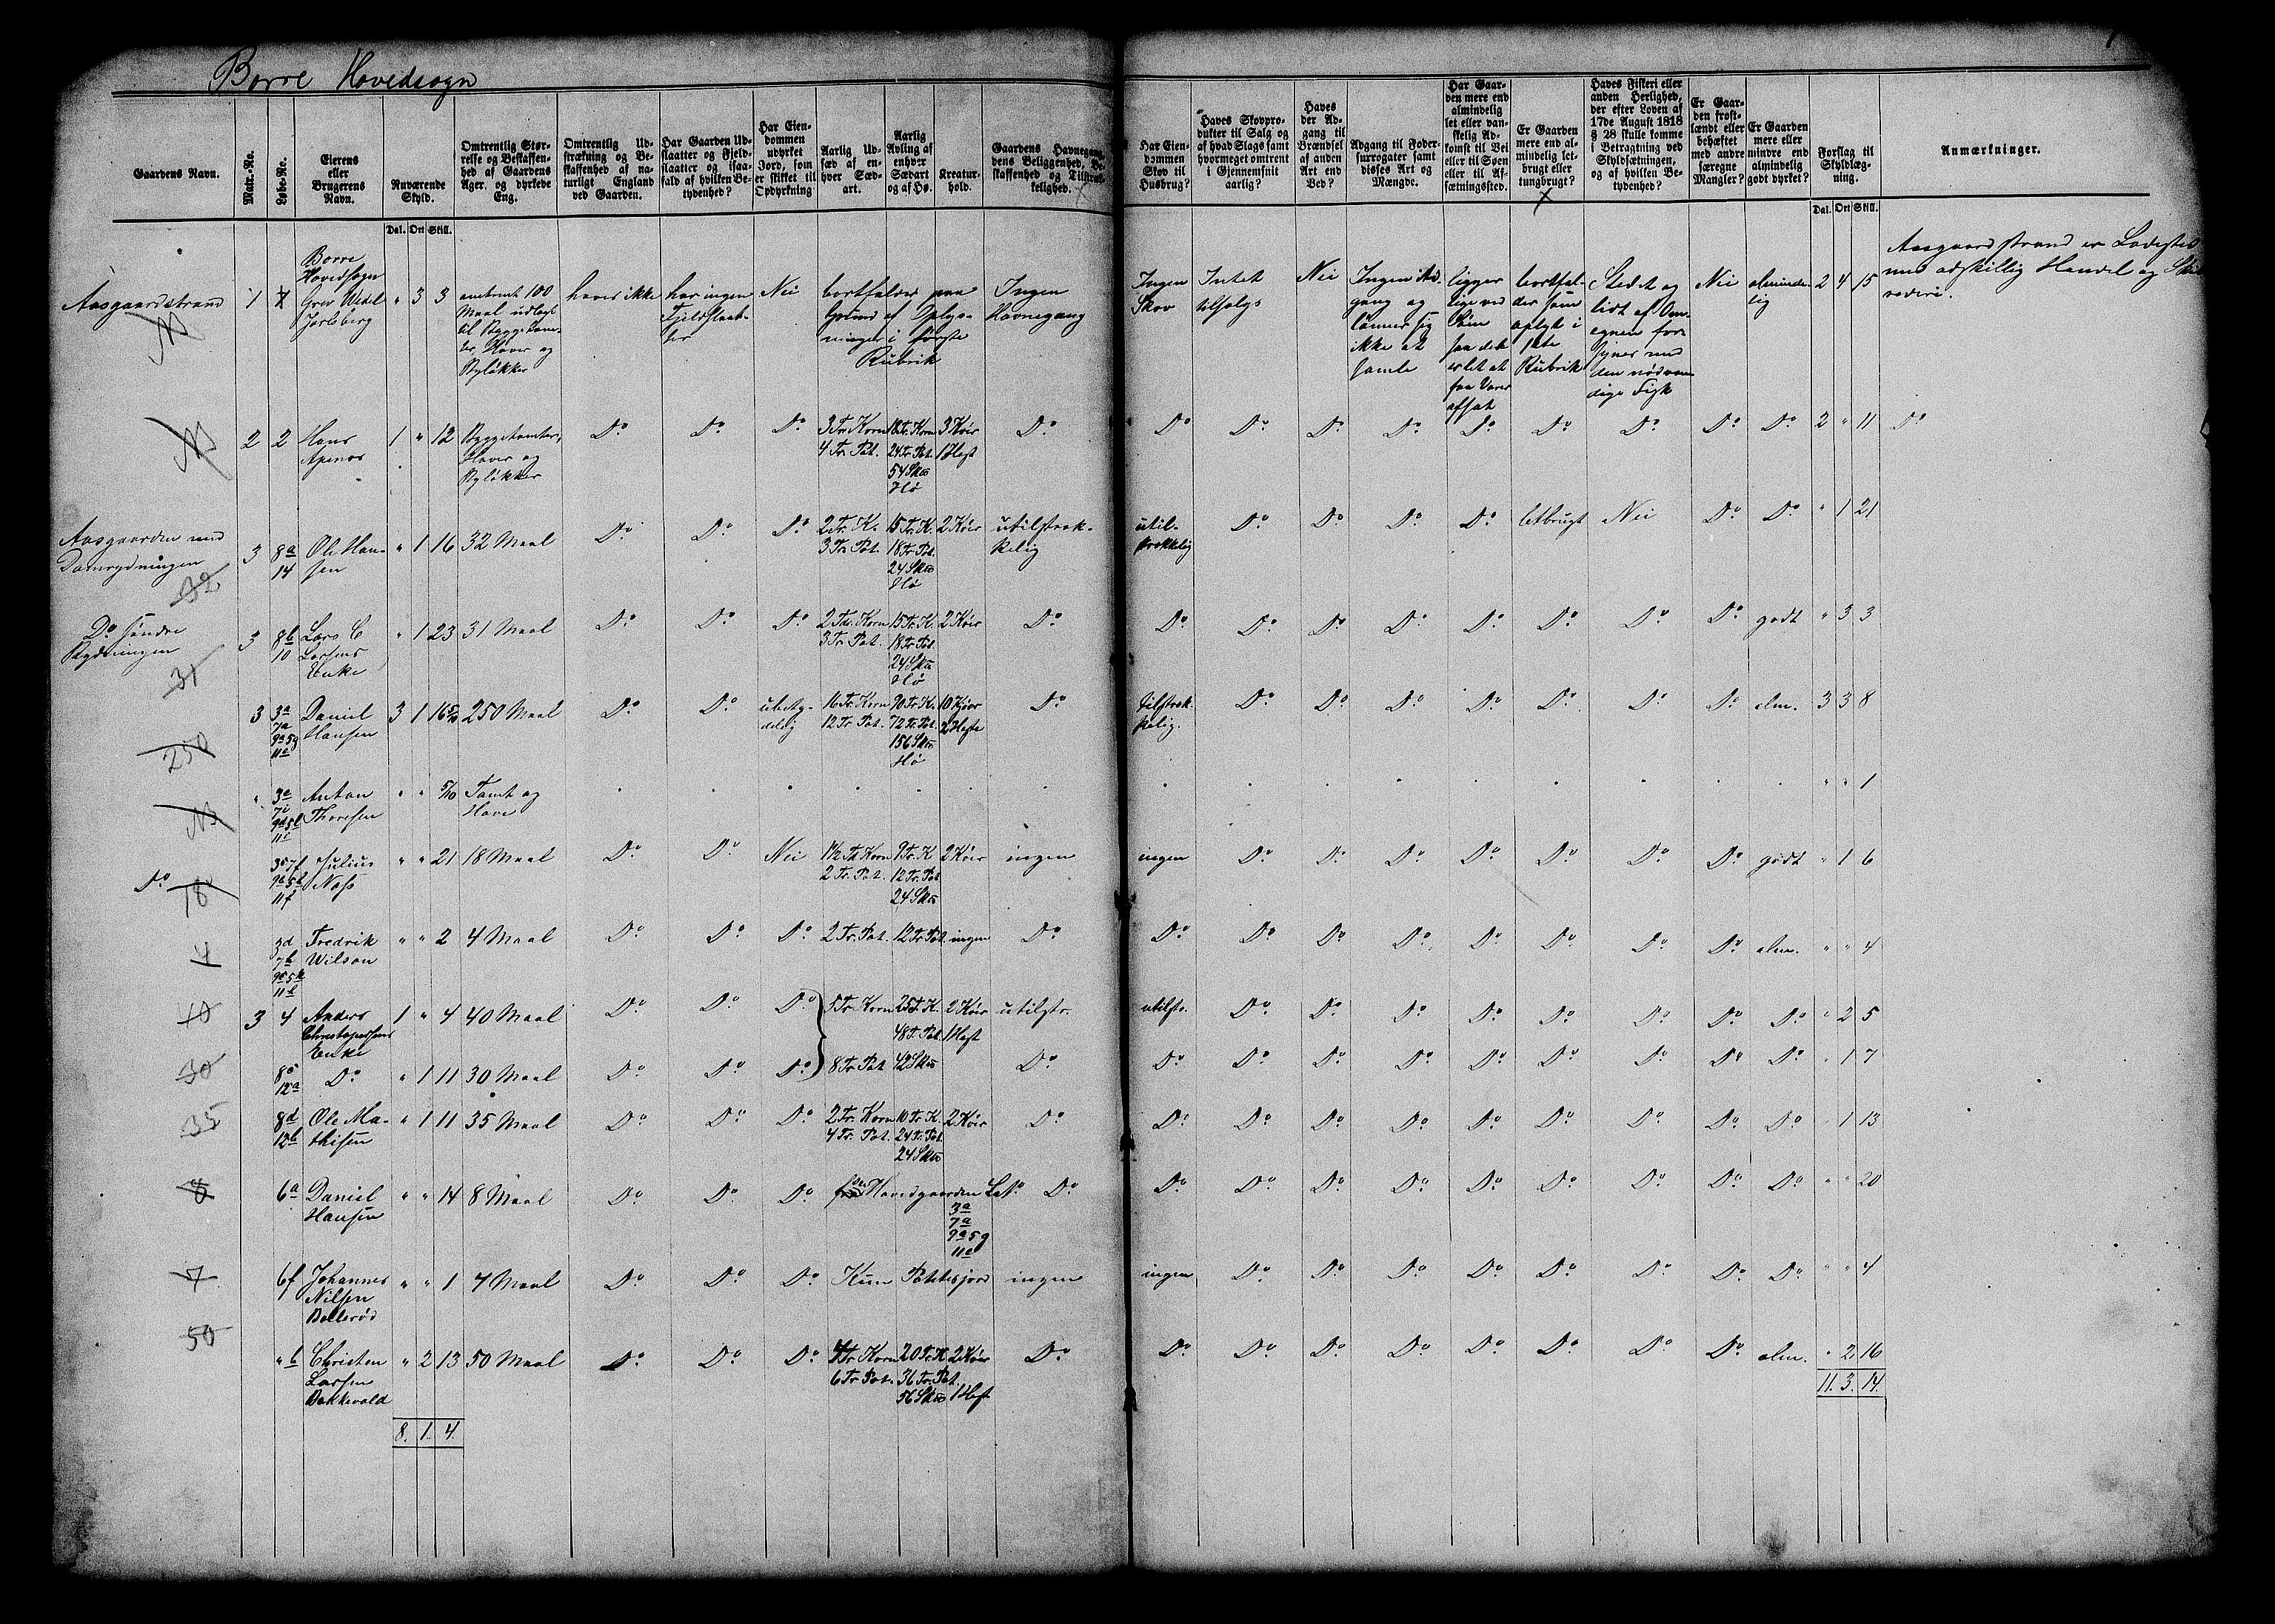 Borre Hovedsogn
Gaardens Navn.
Matr.-No.
Løbe-No.
Eierens
eller
Brugerens
Navn.
Nuværende
Skyld.
Omtrentlig Stør-
relse og Beskaffen-
hed af Gaardens
Ager. og dyrkede
Eng.
Omtrentlig Ud-
strækning og Be-
skaffenhed af na-
turligt England
ved Gaarden.
Har Gaarden Ud-
slaatter og Fjeld-
slaatter og isaa-
fald af hvilken Be-
tydenhed?
Har Eien-
dommen
udyrket
Jord, som
er skikket til
Opdyrkning
Aarlig Ud-
sæd af en-
hver Sæd-
art.
Aarlig
Avling af
enhver
Sædart
og af Hø.
Kreatur-
hold.
Gaardens Havnegang,
dens Beliggenhed, Be-
skaffenhed og Tilstræk-
kelighed.
Har Eien-
dommen
Skov til
Husbrug?
Haves Skovpro-
dukter til Salg og
af hvad Slags samt
hvormeget omtrent
i Gjennemsnit
aarlig?
Haves
der Ad-
gang til
Brændsel
af anden
Art end
Ved?
Adgang til Foder-
surrogater samt
disses Art og
Mængde.
Har Gaar-
den mere end
almindelig
let eller van-
skelig Ad-
komst til Vei
eller til Søen
eller til Af-
sætningssted.
Er Gaarden
mere end al-
mindelig let-
brugt eller
tungbrugt?
Haves Fiskeri eller
anden Herlighed,
der efter Loven af
17de August 1818
§ 28 skulle komme
i Betragtning ved
Skyldsætningen,
og af hvilken Be-
tydenhed?
Er Gaar-
den frost-
lændt eller
behæftet
med andre
særegne
Mangler?
Er Gaarden
mere eller
mindre end
almindelig
godt dyrket?
Forslag til
Skyldlæg-
ning.
Anmærkninger.
Dal. Ort Skill.
Dal. Ort Skill.
Aasgaardstrand 1 1 Borre Hovedsogn Grev Wedel Jarlsberg " 3 3 omtrent 100 Maal udlagt til Byggetomter, Haver og Byløkker haves ikke har ingen Fjeldslaatter Nei bortfalder paa Grund af Oplysninger i første Rubrik Ingen Havnegang Ingen Skov Intet tilsalgs Nei Ingen Adgang og lønner sig ikke at samle ligger lige ved Søen saa det er let at faa Varer afsat bortfalder som oplyst i 1ste Rubrik Stedet og lidt af Omegnen forsynes med den nødvendige Fisk Nei almindelig 2 4 15 Aasgaardstrand er Ladested med adskillig Handel og Skibsrederi.
2 2 Hans Apenes 1 " 12 Byggetomter, Haver og Byløkker Do Do Do 3 Tr. Korn 4 Tr. Pot. 18 Tr. Korn 24 Tr. Pot. 54 Sk℔ Hø 3 Køer 1 Hest Do Do Do Do Do Do Do Do Do Do 2 " 11 Do
Aasgaarden med Damrydningen 32 3 8a 14 Ole Hansen " 1 16 32 Maal Do Do Do 2 Tr. K. 3 Tr. Pot. 15 Tr. K. 18 Tr. Pot. 24 Sk℔ Hø 2 Køer utilstrækkelig utilstrekkelig Do Do Do Do letbrugt Nei Do Do " 1 21
Do søndre Rydningen 31 3 8b 10 Lars C Larsens Enke " 1 23 31 Maal Do Do Do 2 Td. Korn 3 Tr. Pot. 15 Tr. K. 18 Tr. Pot. 24 Sk℔ Hø 2 Køer Do Do Do Do Do Do Do Do Do godt " 3 3
250 3 3a 7a 9a 5g 11a Daniel Hansen 3 1 16 5/10 250 Maal Do Do ubetydelig 16 Tr. Korn 12 Tr. Pot. 90 Tr. K. 72 Tr. Pot. 156 Sk℔ Hø 10 Kjør 2 Heste Do tilstrekkelig. Do Do Do Do Do Do Do alm. 3 3 8
" 3e 7i 9d 5l 11i Anton Thoresen " " 5/10 Tomt og Have " " 1
Do 18 3c 7f 9b 5h 11f Julius Næss " " 21 18 Maal Do Do Nei 1 1/2 Td Korn 2 Tr. Pot. 9 Tr. K 12 Tr. Pot 24 Sk℔ 2 Køer ingen ingen Do Do Do Do Do Do Do godt " 1 6
4 3d 7h 9c 5k 11h Fredrik Wilson " " 2 4 Maal Do Do Do 2 Tr. Pot. 12 Tr Pot. ingen Do Do Do Do Do Do Do Do Do alm. " " 4
40 3 4 Anders Christophersens Enke 1 " 4 40 Maal Do Do Do 5 Tr Korn 25 T. K. 48 T. Pot. 2 Køer 1 Hest utilstr. utilstr. Do Do Do Do Do Do Do Do " 2 5
30 8c 12a Do " 1 11 30 Maal Do Do Do 8 Tr Pot 42 Sk℔ Do Do Do Do Do Do Do Do Do Do " 1 7
35 8d 12b Ole Mathisen " 1 11 35 Maal Do Do Do 2 Tr. Korn 4 Tr. Pot. 10 Tr K. 24 Tr. Pot. 24 Sk℔ 2 Køer Do Do Do Do Do Do Do Do Do Do " 1 13
8 6a Daniel Hansen " " 14 8 Maal Do Do Do se Hovedgaarden LNo 3a 7a 9a 5g 11a Do Do Do Do Do Do Do Do Do Do " " 20
7 6f Johannes Nilsen Bollerød " " 1 7 Maal Do Do Do Kun Potetesjord ingen ingen Do Do Do Do Do Do Do Do " " 4
50 " b Christen Larsen Bakkevold " 2 13 50 Maal Do Do Do 4 Tr Korn 6 Tr Pot. 20 Tr. K. 36 Tr. Pot. 56 Sk℔ 2 Køer 1 Hest Do Do Do Do Do Do Do Do Do alm. " 2 16
11. 3. 14.
8. 1. 4.